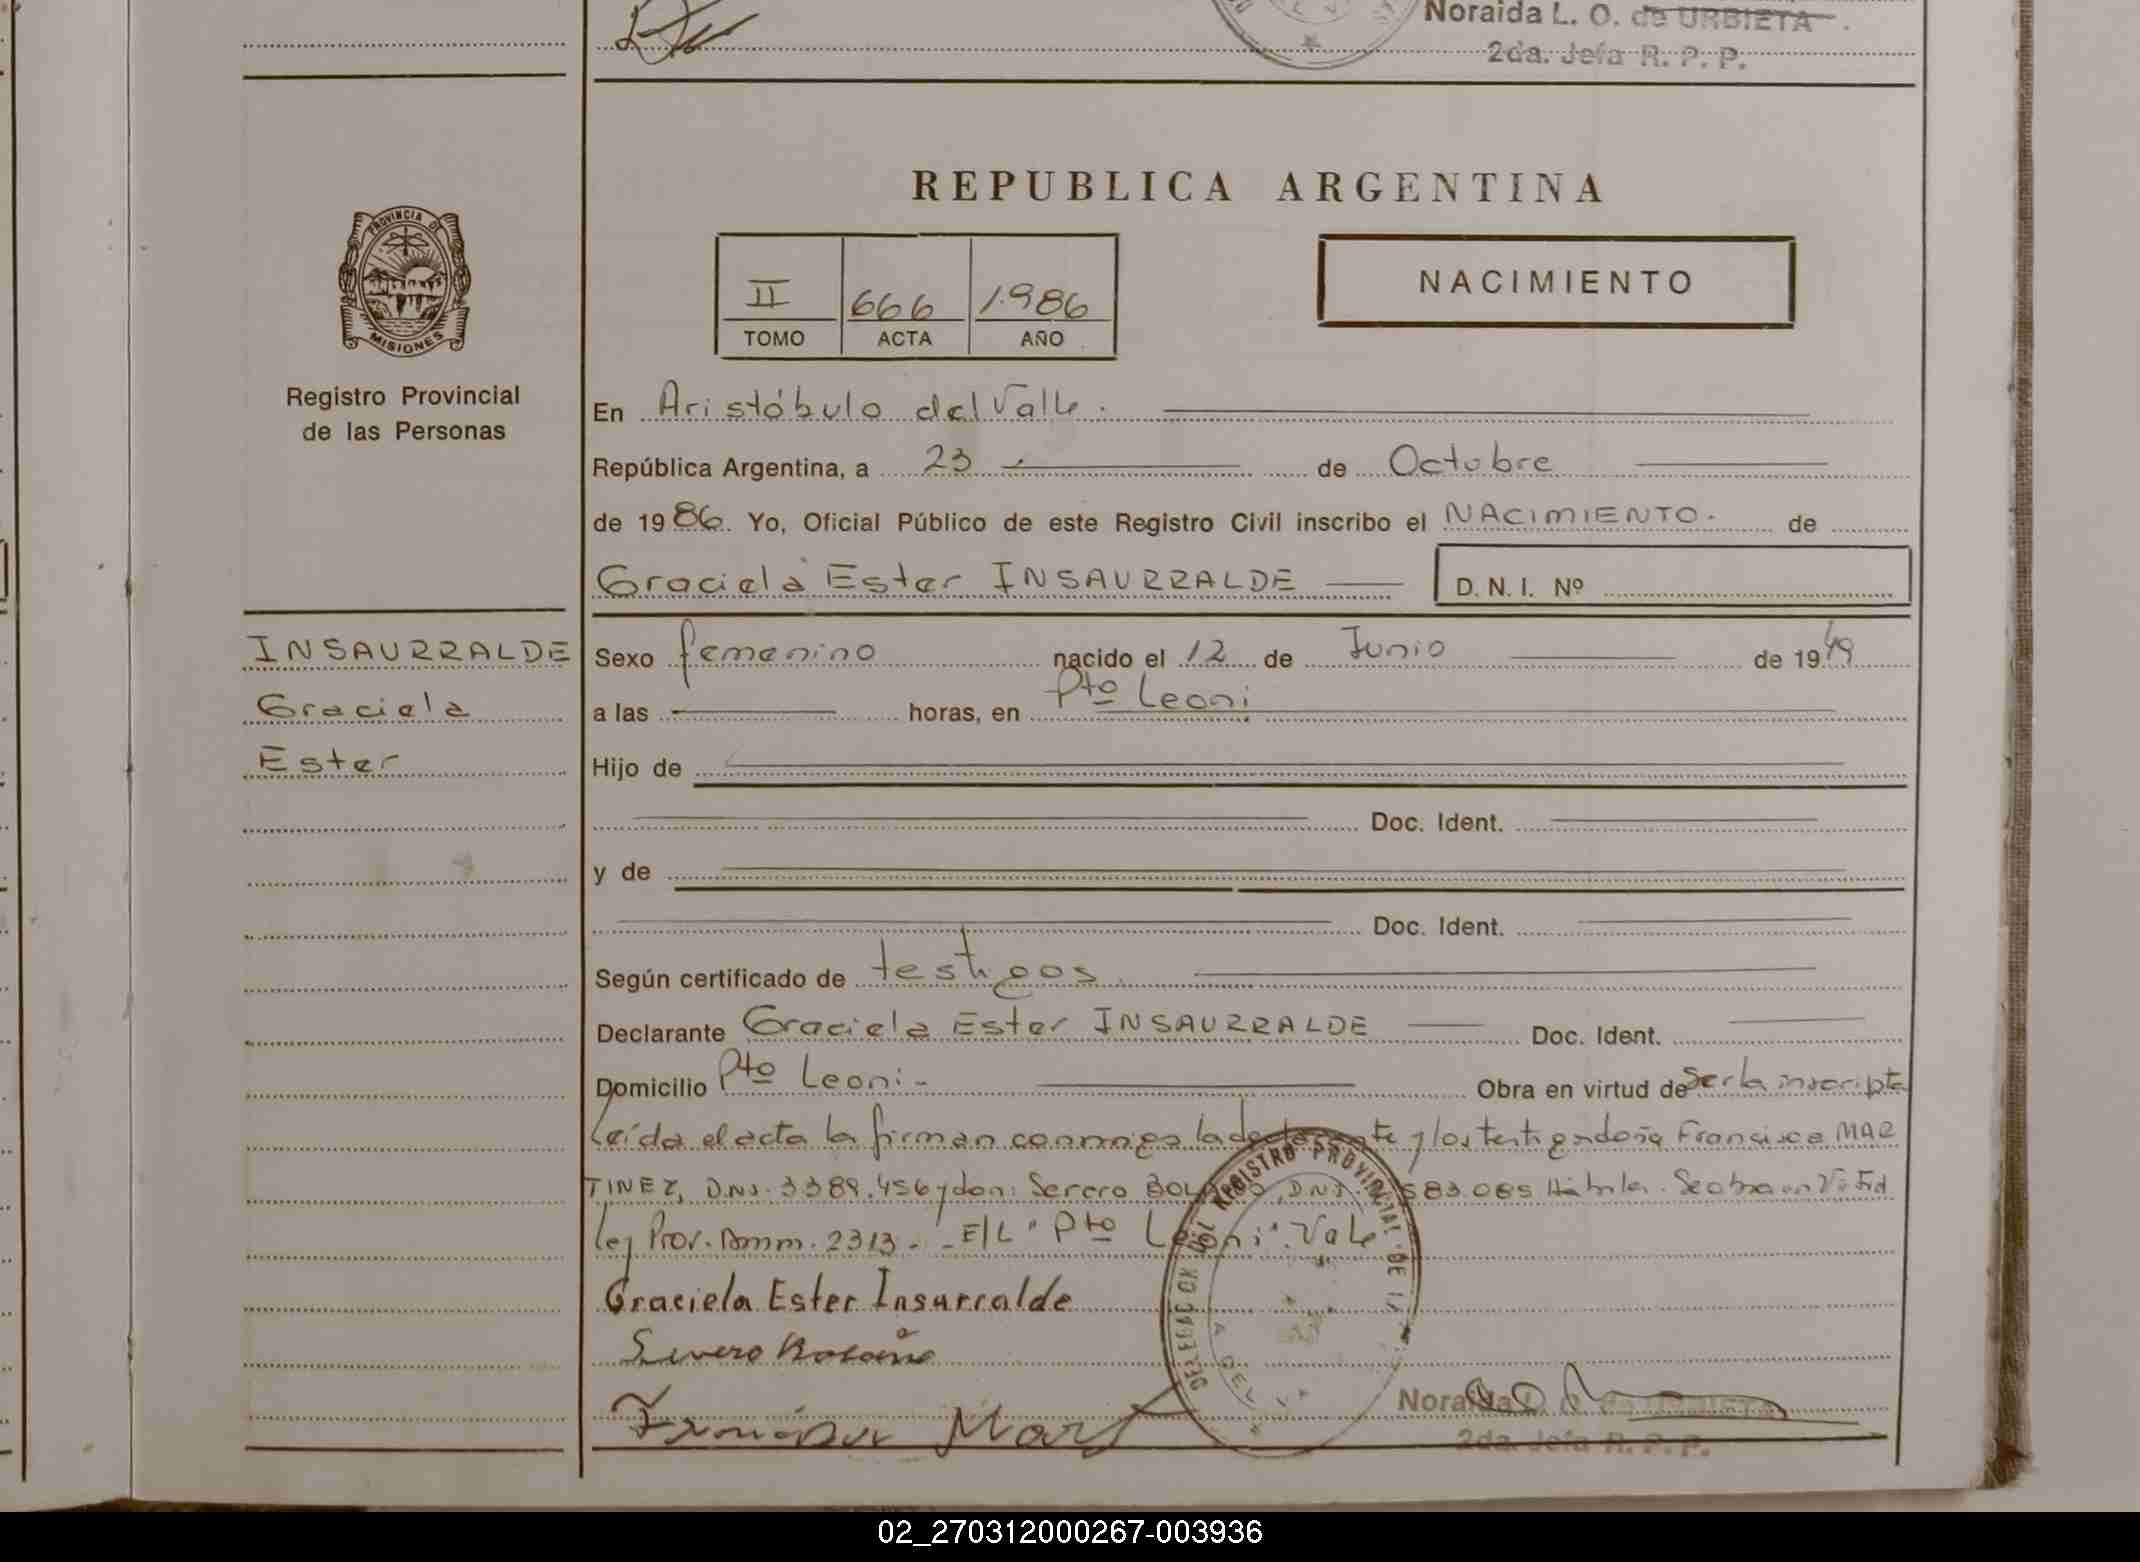 Noraida L. O. de URBIETA
2da. Jefa R. P. P.
PROVINCIA DE
MISIONES
Registro Provincial
de las Personas
REPUBLICA ARGENTINA
II 666 1.986
TOMO ACTA AÑO
NACIMIENTO
En Aristóbulo del Valle.
República Argentina, a 23 de Octubre
de 1986. Yo, Oficial Público de este Registro Civil inscribo el NACIMIENTO. de
Graciela Ester INSAURRALDE D. N. I. Nº
INSAURRALDE
Graciela
Ester
Sexo femenino nacido el 12 de Junio de 1949
a las horas, en Pto Leoni
Hijo de
Doc. Ident.
y de
Doc. Ident.
Según certificado de testigos.
Declarante Graciela Ester INSAURRALDE Doc. Ident.
Domicilio Pto Leoni.- Obra en virtud de Ser la inscripta
Leída el acta la firman conmigo la declarante y los testigos doña Francisca MAR
TINEZ, D.N.I. 3389.456 y don: Severo
ley Prov. 2313.- E/L "Pto Leoni". Vale
Graciela Ester Insurralde
Severo
REGISTRO PROVINCIAL DE LA
Noraida L. O. de URBIETA
2da. Jefa R. P. P.
02_270312000267-003936